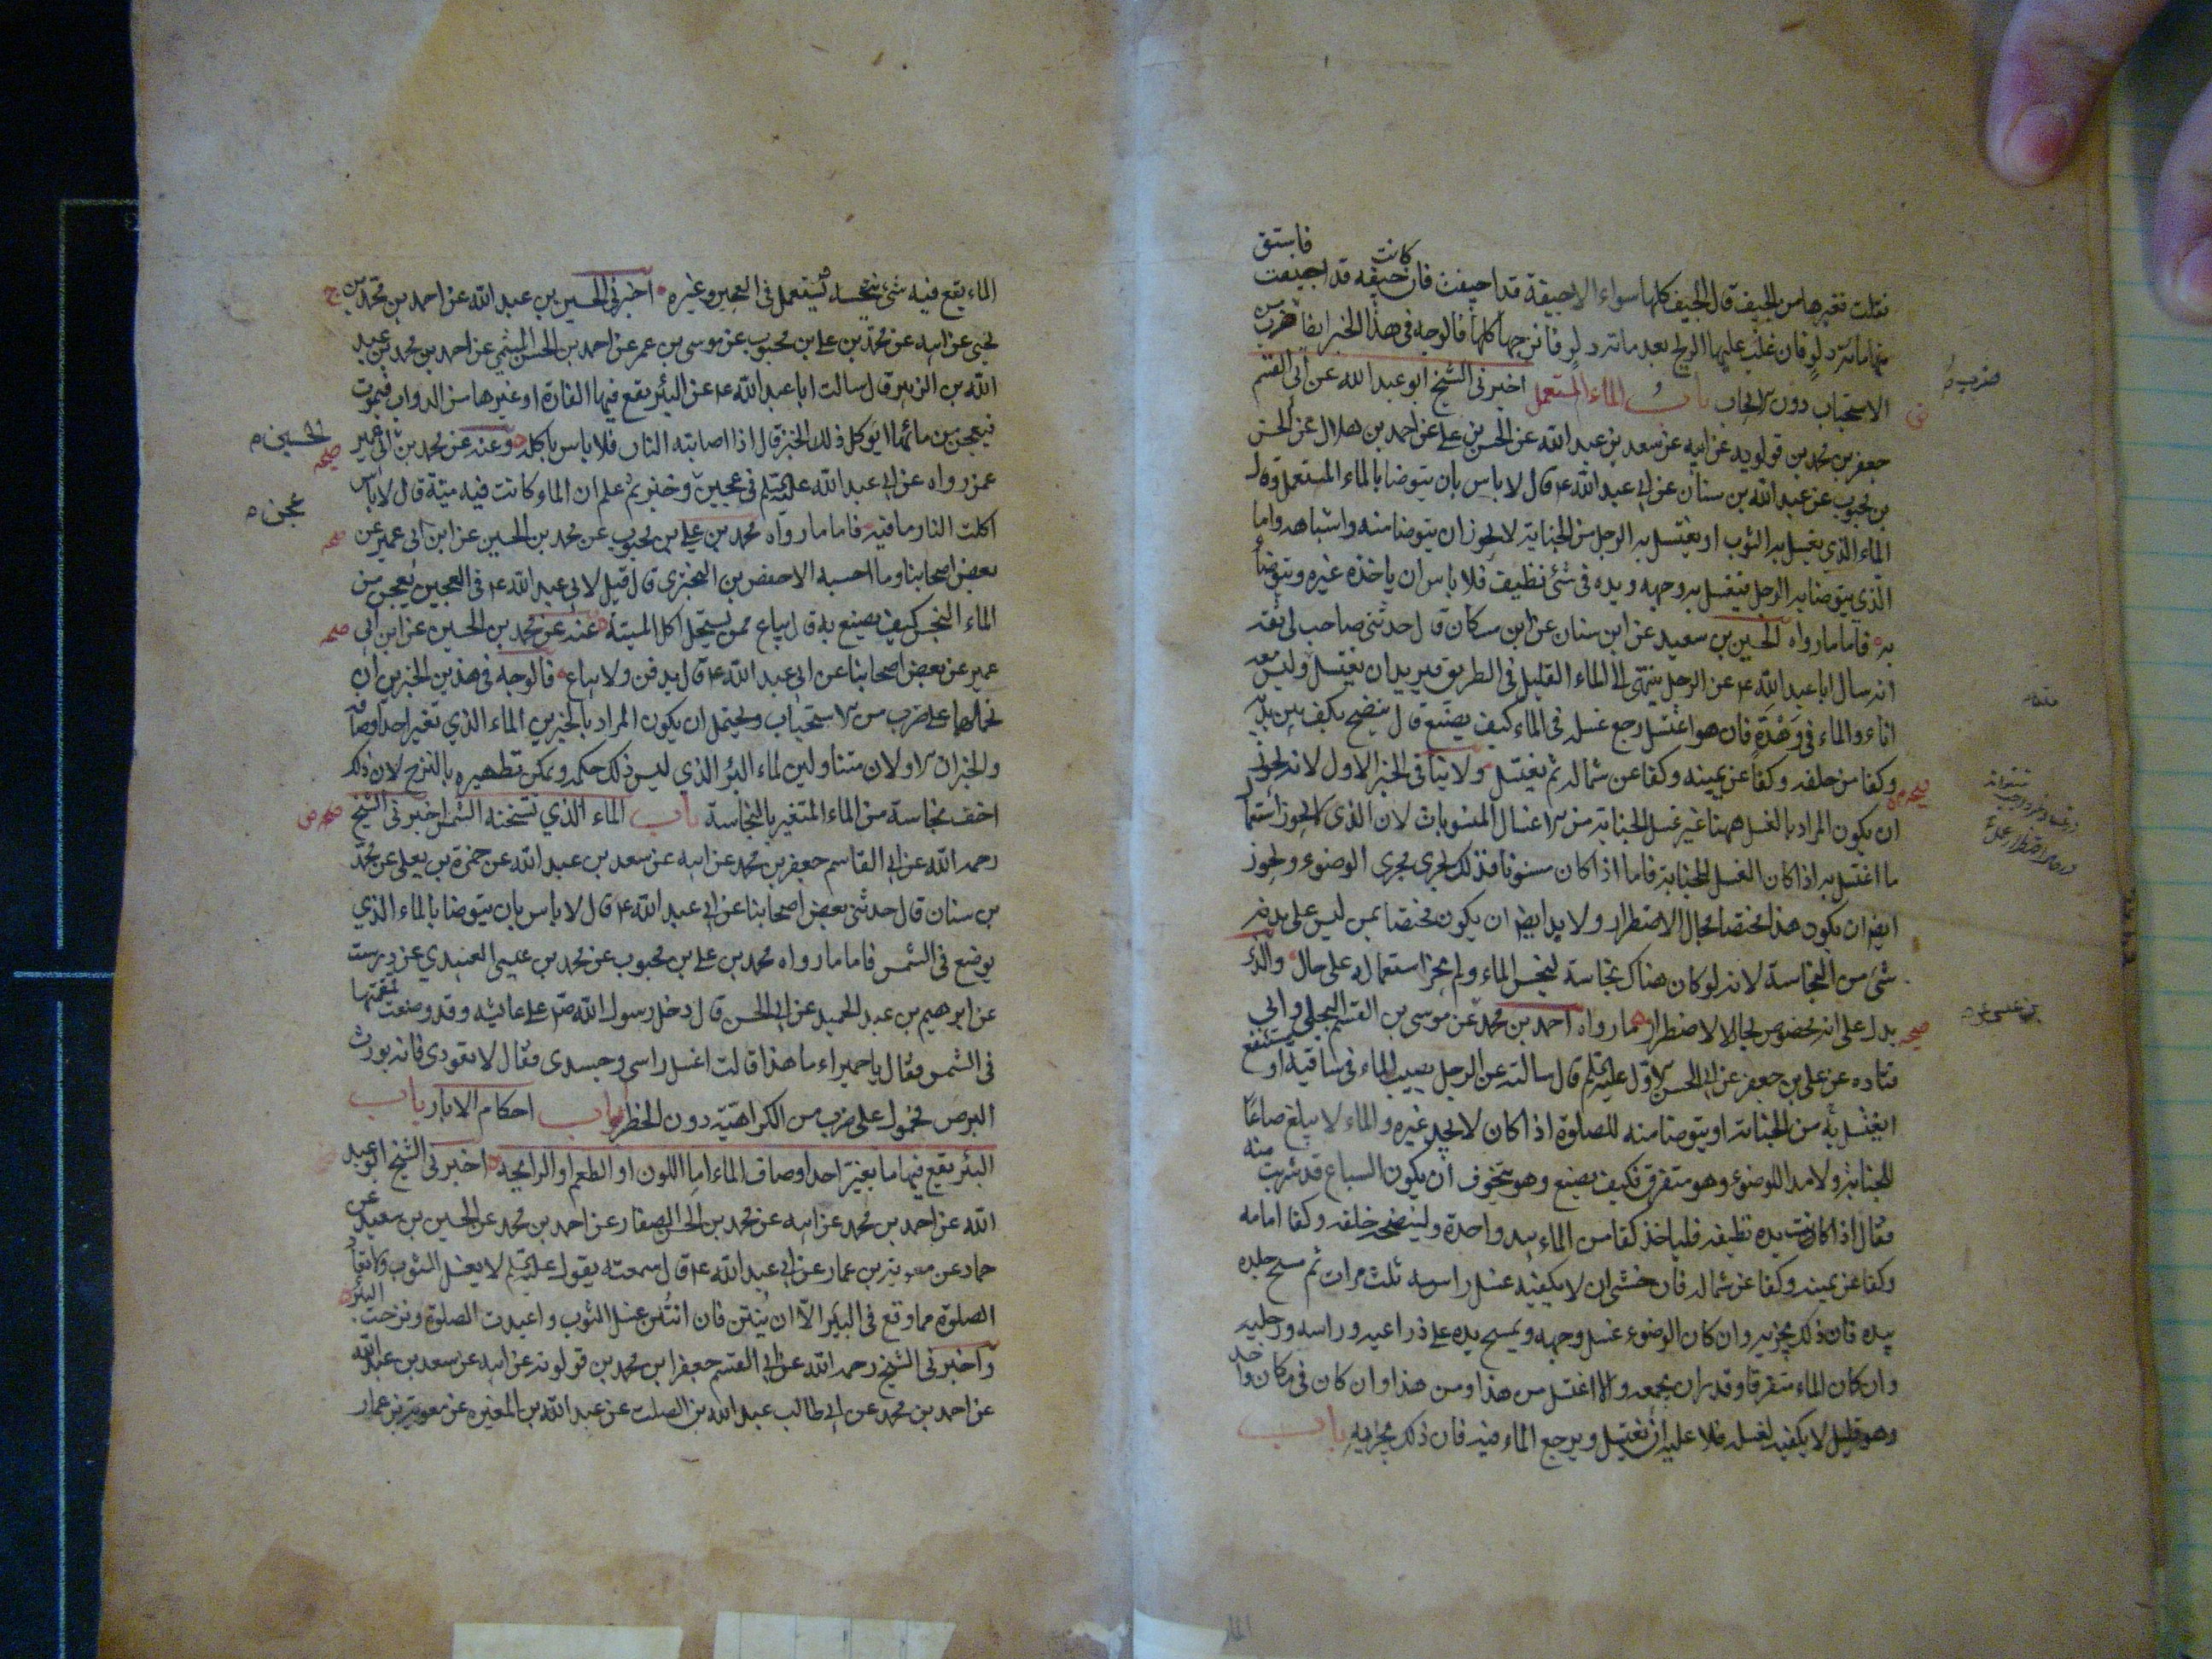 فقلت فغيرها من الجيف قال الجيف كلها سواء الا جيفة قد اجيفت فان كانت جيفة قد اجيفت فاستق
منها مائة دلو فان غلب عليها الريح بعد مائة دلو فانزحها كلها فالوجه في هذا الخبر ايضا ضرب من
الاستحباب دون الايجاب باب الماء المستعمل اخبرني الشيخ ابو عبد الله عن ابي القسم
جعفر بن محمد بن قولويه عن ابيه عن سعد بن عبد الله عن الحسن بن علي عن احمد بن هلال عن الحسن
بن محبوب عن عبد الله بن سنان عن ابي عبد الله ع قال لا باس بان يتوضا بالماء المستعمل وقال
الماء الذي يغسل به الثوب او يغتسل به الرجل من الجنابة لا يجوز ان يتوضا منه واشباهه واما
الذي يتوضا به الرجل فيغسل به وجهه ويده في شئ نظيف فلا باس ان ياخذه غيره ويتوضا
به فاما ما رواه الحسين بن سعيد عن ابن سنان عن ابن مسكان قال حدثني صاحب لي ثقة
انه سال ابا عبد الله ع عن الرجل ينتهي الى الماء القليل في الطريق فيريد ان يغتسل وليس معه
اناء والماء في وهدة فان هو اغتسل رجع غسله في الماء كيف يصنع قال ينضح بكف بين يديه
وكفا من خلفه وكفا عن يمينه وكفا عن شماله ثم يغتسل ولا ينافي الخبر الاول لانه يجوز
ان يكون المراد بالغسل ههنا غير غسل الجنابة من الاغسال المسنونات لان الذي لا يجوز استعمال
ما اغتسل به اذا كان الغسل للجنابة فاما اذا كان مسنونا فذلك يجري مجرى الوضوء ويجوز
ايضا ان يكون هذا مختصا بحال الاضطرار ولا بد ايضا ان يكون مختصا بمن ليس على بدنه
شئ من النجاسة لانه لو كان هناك نجاسة لنجس الماء ولم يجز استعماله على حال والذي
يدل على انه مخصوص بحال الاضطرار ما رواه احمد بن محمد عن موسى بن القسم البجلي وابي
قتادة عن علي بن جعفر عن ابي الحسن الاول عليه السلم قال سالته عن الرجل يصيب الماء في ساقية او مستنقع
ايغتسل به من الجنابة او يتوضا منه للصلوة اذا كان لا يجد غيره والماء لا يبلغ صاعا
للجنابة ولا مدا للوضوء وهو متفرق فكيف يصنع وهو يتخوف ان يكون السباع قد شربت منه
فقال اذا كانت يده نظيفة فلياخذ كفا من الماء بيد واحدة ولينضحه خلفه وكفا امامه
وكفا عن يمينه وكفا عن شماله فان خشي ان لا يكفيه غسل راسه ثلث مرات ثم مسح جلده
بيده فان ذلك يجزيه وان كان الوضوء غسل وجهه ويمسح يده على ذراعيه وراسه ورجليه
وان كان الماء متفرقا وقدر ان يجمعه والا اغتسل من هذا ومن هذا وان كان في مكان واحد
وهو قليل لا يكفيه لغسله فلا عليه ان يغتسل ويرجع الماء فيه فان ذلك يجزيه باب
الماء يقع فيه شئ ينجسه يستعمل في العجين وغيره اخبرني الحسين بن عبد الله عن احمد بن محمد بن
يحيى عن ابيه عن محمد بن علي بن محبوب عن موسى بن عمر عن احمد بن الحسن الميثمي عن احمد بن محمد بن عبد
الله بن الزبير قال سالت ابا عبد الله ع عن البئر يقع فيها الفارة او غيرها من الدواب فيموت
فيعجن من مائها ايوكل ذلك الخبز قال اذا اصابته النار فلا باس باكله وعنه عن محمد بن ابي عمير
عمن رواه عن ابي عبد الله عليه السلم في عجين وخبز ثم علم ان الماء كانت فيه ميتة قال لا باس
اكلت النار ما فيه فاما ما رواه محمد بن علي بن محبوب عن محمد بن الحسين عن ابن ابي عمير عن
بعض اصحابنا وما احسبه الا حفص بن البختري قال قيل لابي عبد الله ع في العجين يعجن من
الماء النجس كيف يصنع به قال يباع ممن يستحل اكل الميتة عنه عن محمد بن الحسين عن ابن ابي
عمير عن بعض اصحابنا عن ابي عبد الله ع قال يدفن ولا يباع فالوجه في هذين الخبرين ان
نحملهما على ضرب من الاستحباب ويحتمل ان يكون المراد بالخبرين الماء الذي تغير احد اوصافه
والخبران الاولان متناولين لماء البئر الذي ليس ذلك حكمه ويمكن تطهيره بالنزح لان ذلك
اخف نجاسة من الماء المتغير بالنجاسة باب الماء الذي تسخنه الشمس اخبرني الشيخ
رحمه الله عن ابي القاسم جعفر بن محمد عن ابيه عن سعد بن عبد الله عن حمزة بن يعلى عن محمد
بن سنان قال حدثني بعض اصحابنا عن ابي عبد الله ع قال لا باس بان يتوضا بالماء الذي
يوضع في الشمس فاما ما رواه محمد بن علي بن محبوب عن محمد بن عيسى العبيدي عن درست
عن ابرهيم بن عبد الحميد عن ابي الحسن قال دخل رسول الله ص على عايشة وقد وضعت قمقمتها
في الشمس فقال يا حميراء ما هذا قالت اغسل راسي وجسدي فقال لا تعودي فانه يورث
البرص فمحمول على ضرب من الكراهية دون الحظر ابواب احكام الابار باب
البئر يقع فيها ما يغير احد اوصاف الماء اما اللون او الطعم او الرائحة اخبرني الشيخ ابو عبد
الله عن احمد بن محمد عن ابيه عن محمد بن الحسن الصفار عن احمد بن محمد عن الحسين بن سعيد عن
حماد عن معوية بن عمار عن ابي عبد الله ع قال سمعته يقول عليه السلم لا يغسل الثوب ولا تعاد
الصلوة مما وقع في البئر الا ان ينتن فان انتن غسل الثوب واعيدت الصلوة ونزحت البئر
واخبرني الشيخ رحمه الله عن ابي القسم جعفر ابن محمد بن قولويه عن ابيه عن سعد بن عبد الله
عن احمد بن محمد عن ابي طالب عبد الله بن الصلت عن عبد الله بن المغيره عن معوية بن عمار